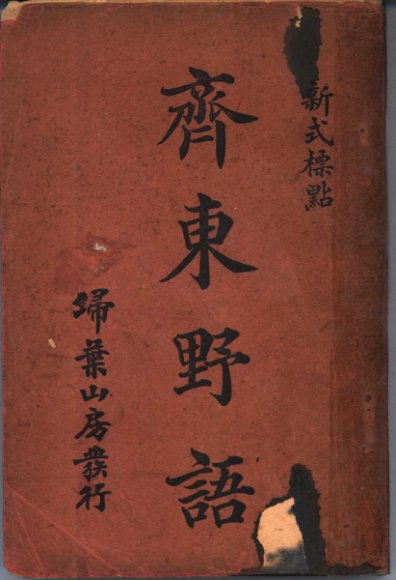 新式標點
齊東野語
埽葉山房發行